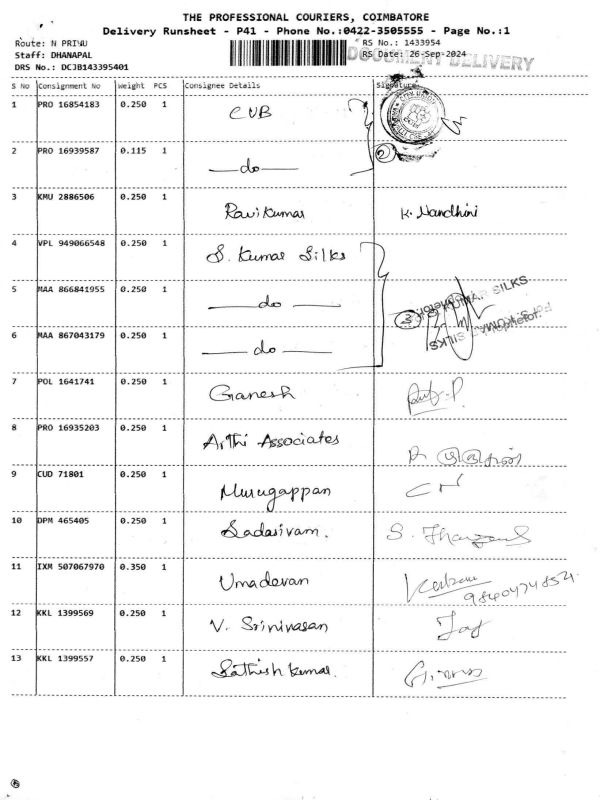 THE PROFESSIONAL COURIERS, COIMBATORE
Delivery Runsheet - P41 - Phone No.:0422-3505555 - Page No.:1
Route: N PRIYU
RS No.: 1433954
Staff: DHANAPAL
RS Date: 26-Sep-2024
DOCUMENT DELIVERY
DRS No.: DCJB143395401
S No Consignment No Weight PCS Consignee Details Signature
1 PRO 16854183 0.250 1 CUB
2 PRO 16939587 0.115 1 —do— 2
3 KMU 2886506 0.250 1 Ravikumar K. Nandhini
4 VPL 949066548 0.250 1 S. Kumar Silks
5 MAA 866841955 0.250 1 — do — 3
6 MAA 867043179 0.250 1 — do —
SILKS
7 POL 1641741 0.250 1 Ganesh
8 PRO 16935203 0.250 1 Arthi Associates
9 CUD 71801 0.250 1 Murugappan
10 DPM 465405 0.250 1 Sadasivam.
11 IXM 507067970 0.350 1 Umadevan
12 KKL 1399569 0.250 1 V. Srinivasan
13 KKL 1399557 0.250 1 Sathish kumar.